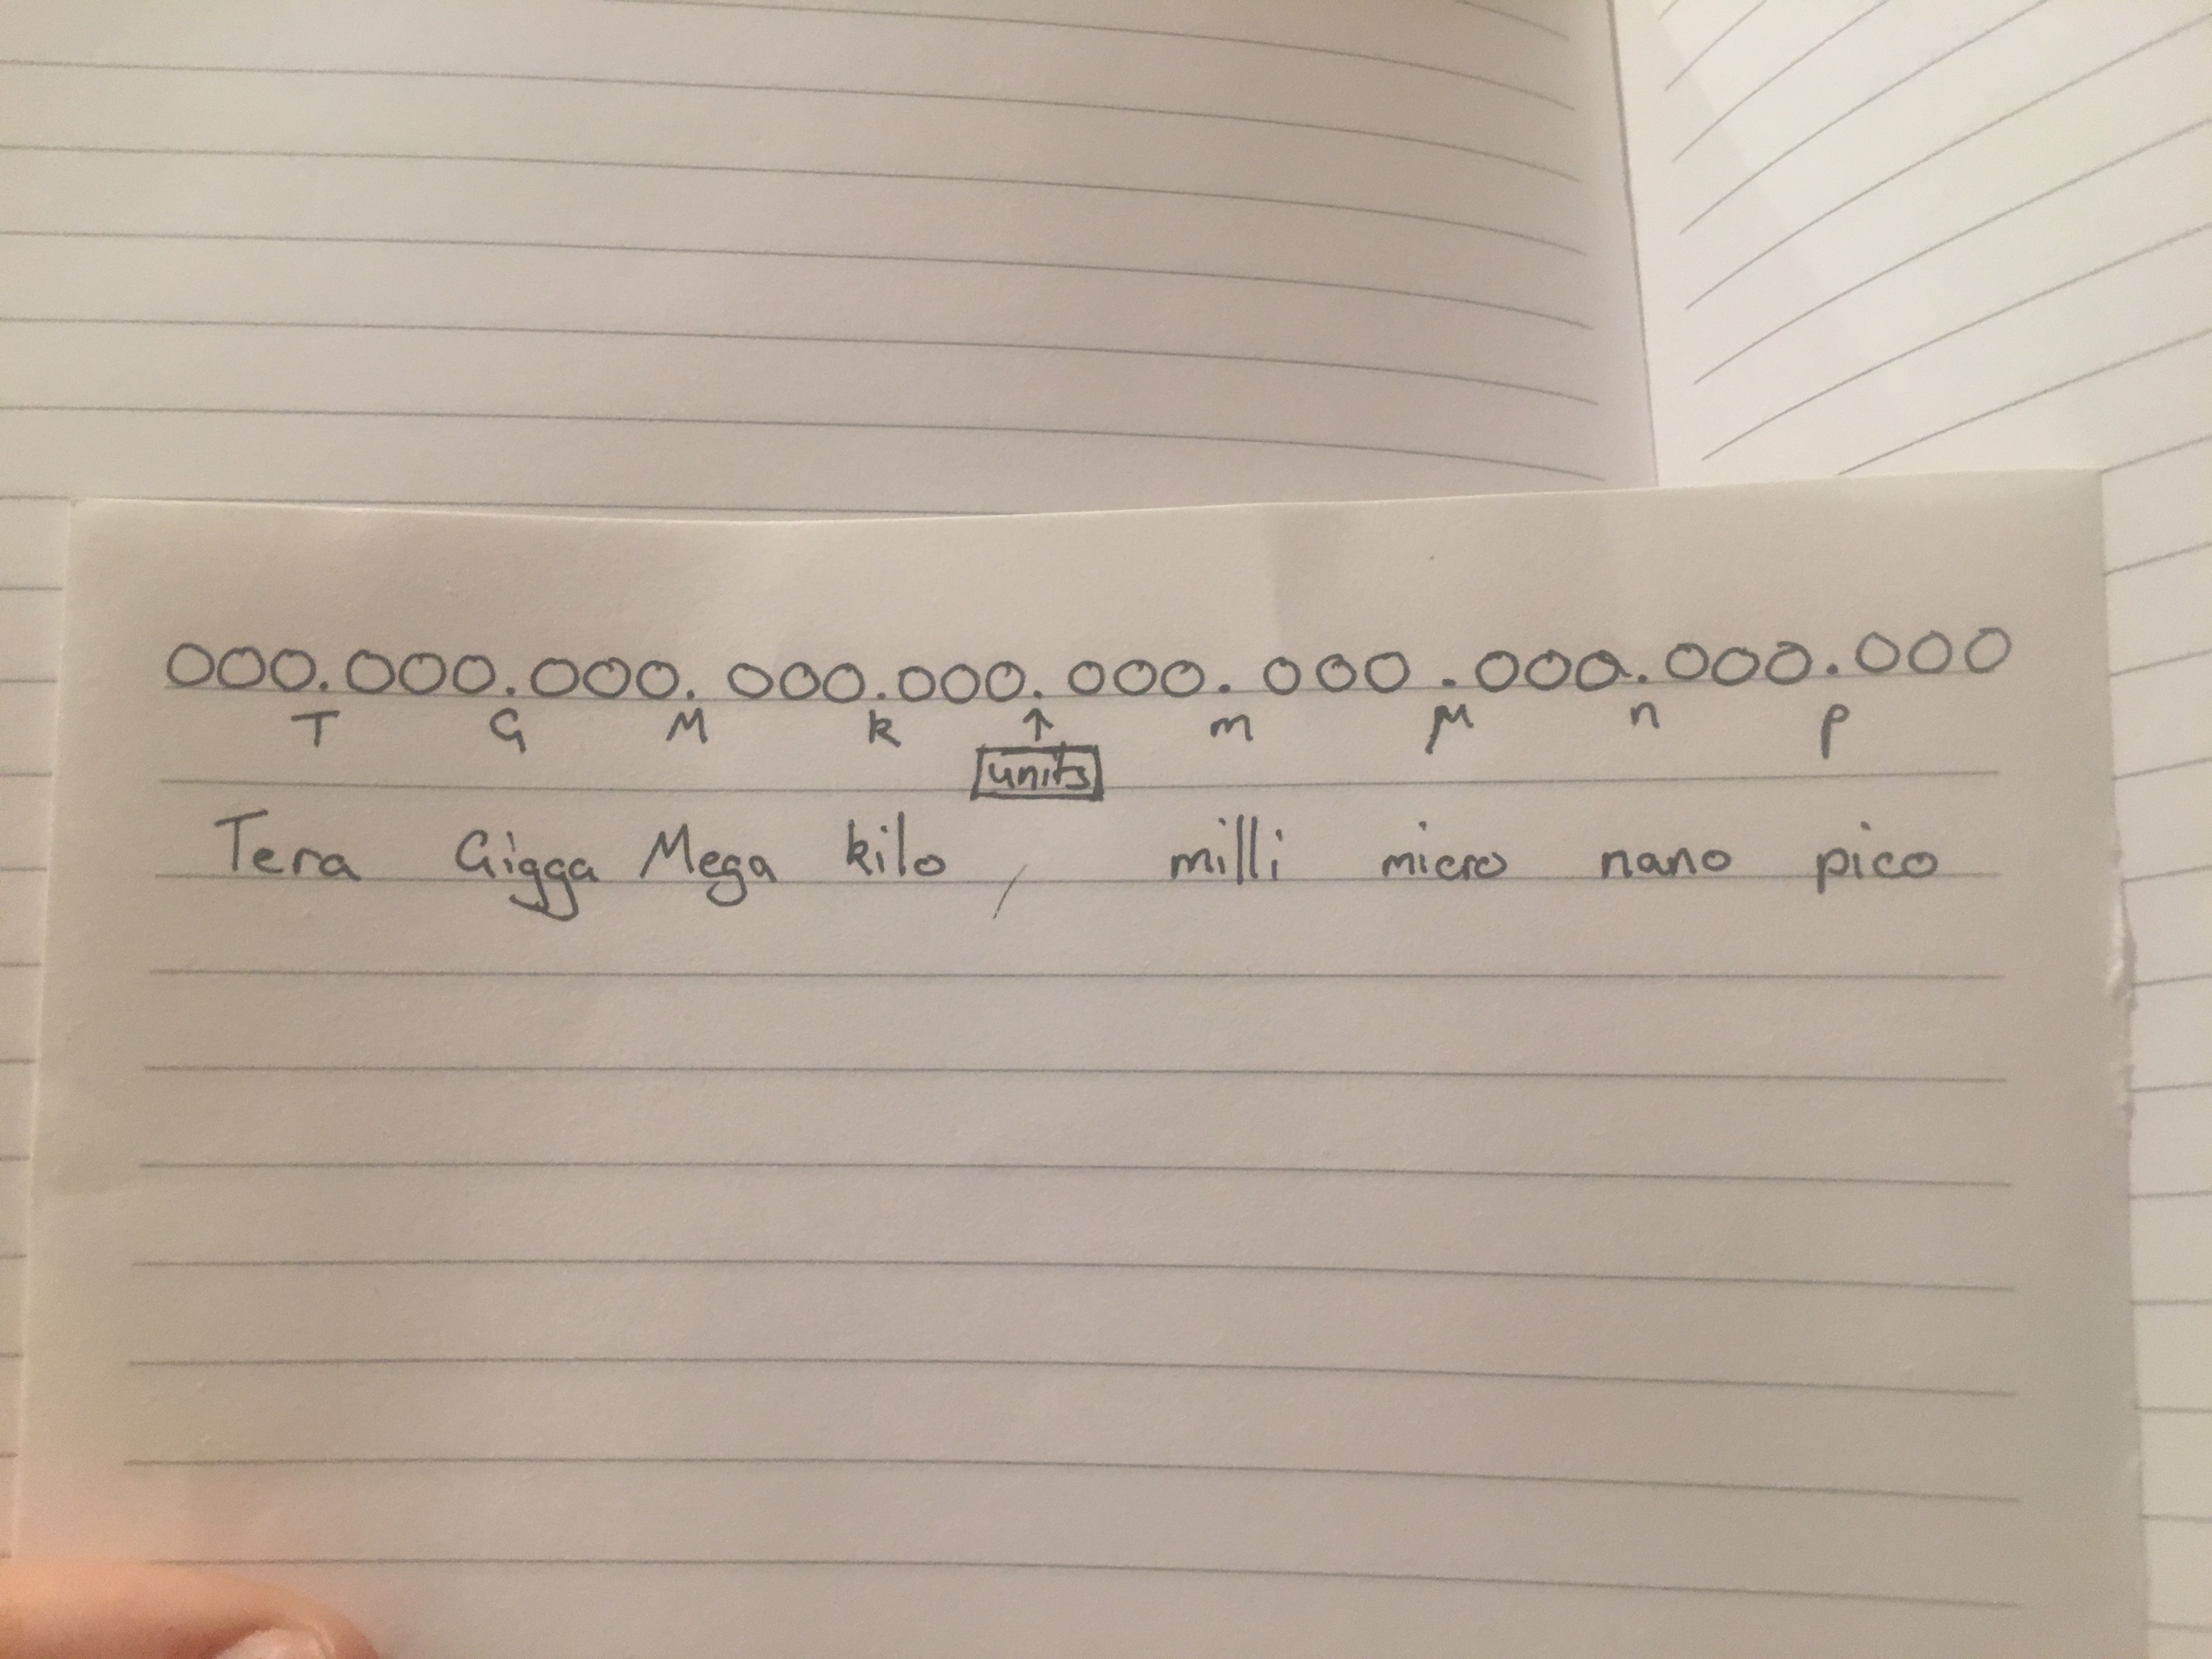 000.000.000.000.000.000.000.000.000.000
T G M k ↑ m μ n p
units
Tera Gigga Mega kilo / milli micro nano pico